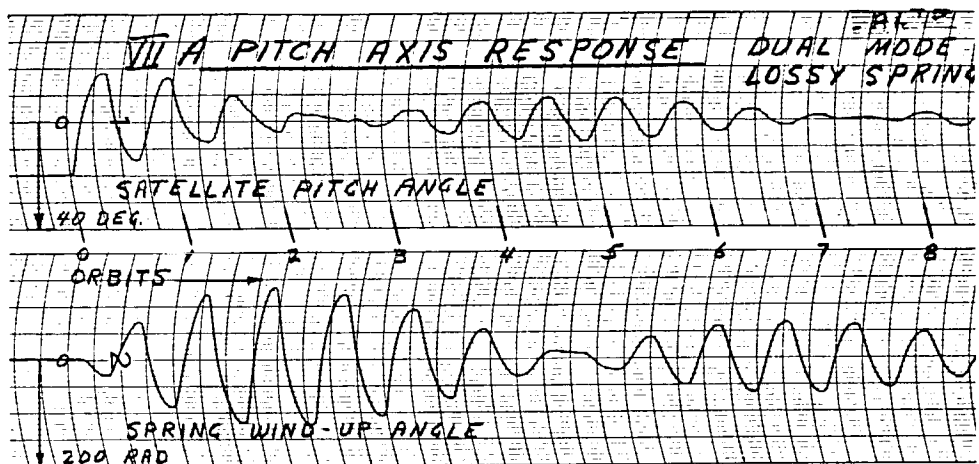 VII A PITCH AXIS RESPONSE DUAL MODE
LOSSY SPRING
0 1
SATELLITE PITCH ANGLE
40 DEG.
0 1 2 3 4 5 6 7 8
ORBITS
0 2
SPRING WIND-UP ANGLE
200 RAD